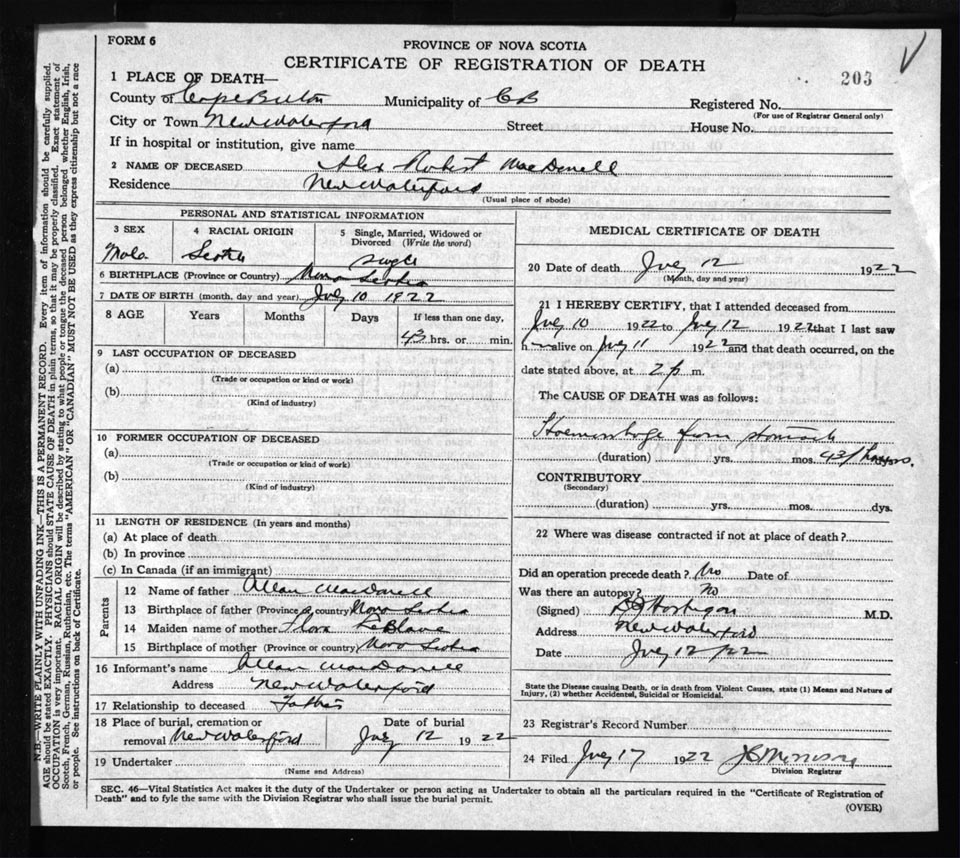 FORM 6
PROVINCE OF NOVA SCOTIA
CERTIFICATE OF REGISTRATION OF DEATH
203
1 PLACE OF DEATH—
County of Cape Breton Municipality of CB Registered No.
(For use of Registrar General only)
City or Town New Waterford Street House No.
If in hospital or institution, give name
2 NAME OF DECEASED Alex Robert MacDonell
Residence New Waterford
(Usual place of abode)
PERSONAL AND STATISTICAL INFORMATION
3 SEX 4 RACIAL ORIGIN 5 Single, Married, Widowed or Divorced (Write the word)
Male Scotch Single
6 BIRTHPLACE (Province or Country) Nova Scotia
7 DATE OF BIRTH (month, day and year) July 10 1922
8 AGE Years Months Days If less than one day,
43 hrs. or min.
9 LAST OCCUPATION OF DECEASED
(a)
(Trade or occupation or kind or work)
(b)
(Kind of industry)
10 FORMER OCCUPATION OF DECEASED
(a)
(Trade or occupation or kind of work)
(b)
(Kind of industry)
11 LENGTH OF RESIDENCE (In years and months)
(a) At place of death
(b) In province
(c) In Canada (if an immigrant)
Parents
12 Name of father Allan MacDonell
13 Birthplace of father (Province or country) Nova Scotia
14 Maiden name of mother Flora
15 Birthplace of mother (Province or country) Nova Scotia
16 Informant's name Allan MacDonell
Address New Waterford
17 Relationship to deceased Father
18 Place of burial, cremation or removal New Waterford
Date of burial July 12 1922
19 Undertaker
(Name and Address)
MEDICAL CERTIFICATE OF DEATH
20 Date of death July 12 1922
(Month, day and year)
21 I HEREBY CERTIFY, that I attended deceased from
July 10 1922 to July 12 1922 that I last saw
h alive on July 11 1922 and that death occurred, on the
date stated above, at 2 p m.
The CAUSE OF DEATH was as follows:
Haemorrhage from stomach
(duration) yrs. mos. 43 hours.
CONTRIBUTORY
(Secondary)
(duration) yrs. mos. dys.
22 Where was disease contracted if not at place of death?
Did an operation precede death? No Date of
Was there an autopsy? No
(Signed) M.D.
Address New Waterford
Date July 12/22
State the Disease causing Death, or in death from Violent Causes, state (1) Means and Nature of
Injury, (2) whether Accidental, Suicidal or Homicidal.
23 Registrar's Record Number
24 Filed July 17 1922
Division Registrar
SEC. 46—Vital Statistics Act makes it the duty of the Undertaker or person acting as Undertaker to obtain all the particulars required in the "Certificate of Registration of
Death" and to fyle the same with the Division Registrar who shall issue the burial permit.
(OVER)
N.B.—WRITE PLAINLY WITH UNFADING INK—THIS IS A PERMANENT RECORD. Every item of information should be carefully supplied.
AGE should be stated EXACTLY. PHYSICIANS should STATE CAUSE OF DEATH in plain terms, so that it may be properly classified. Exact statement of
OCCUPATION is very important. RACIAL ORIGIN will be described by stating to what people or tongue the deceased person belonged whether English, Irish,
Scotch, French, German, Russian, Ruthenian, etc. The terms "AMERICAN" OR "CANADIAN" MUST NOT BE USED as they express citizenship but not a race
or people. See instructions on back of Certificate.